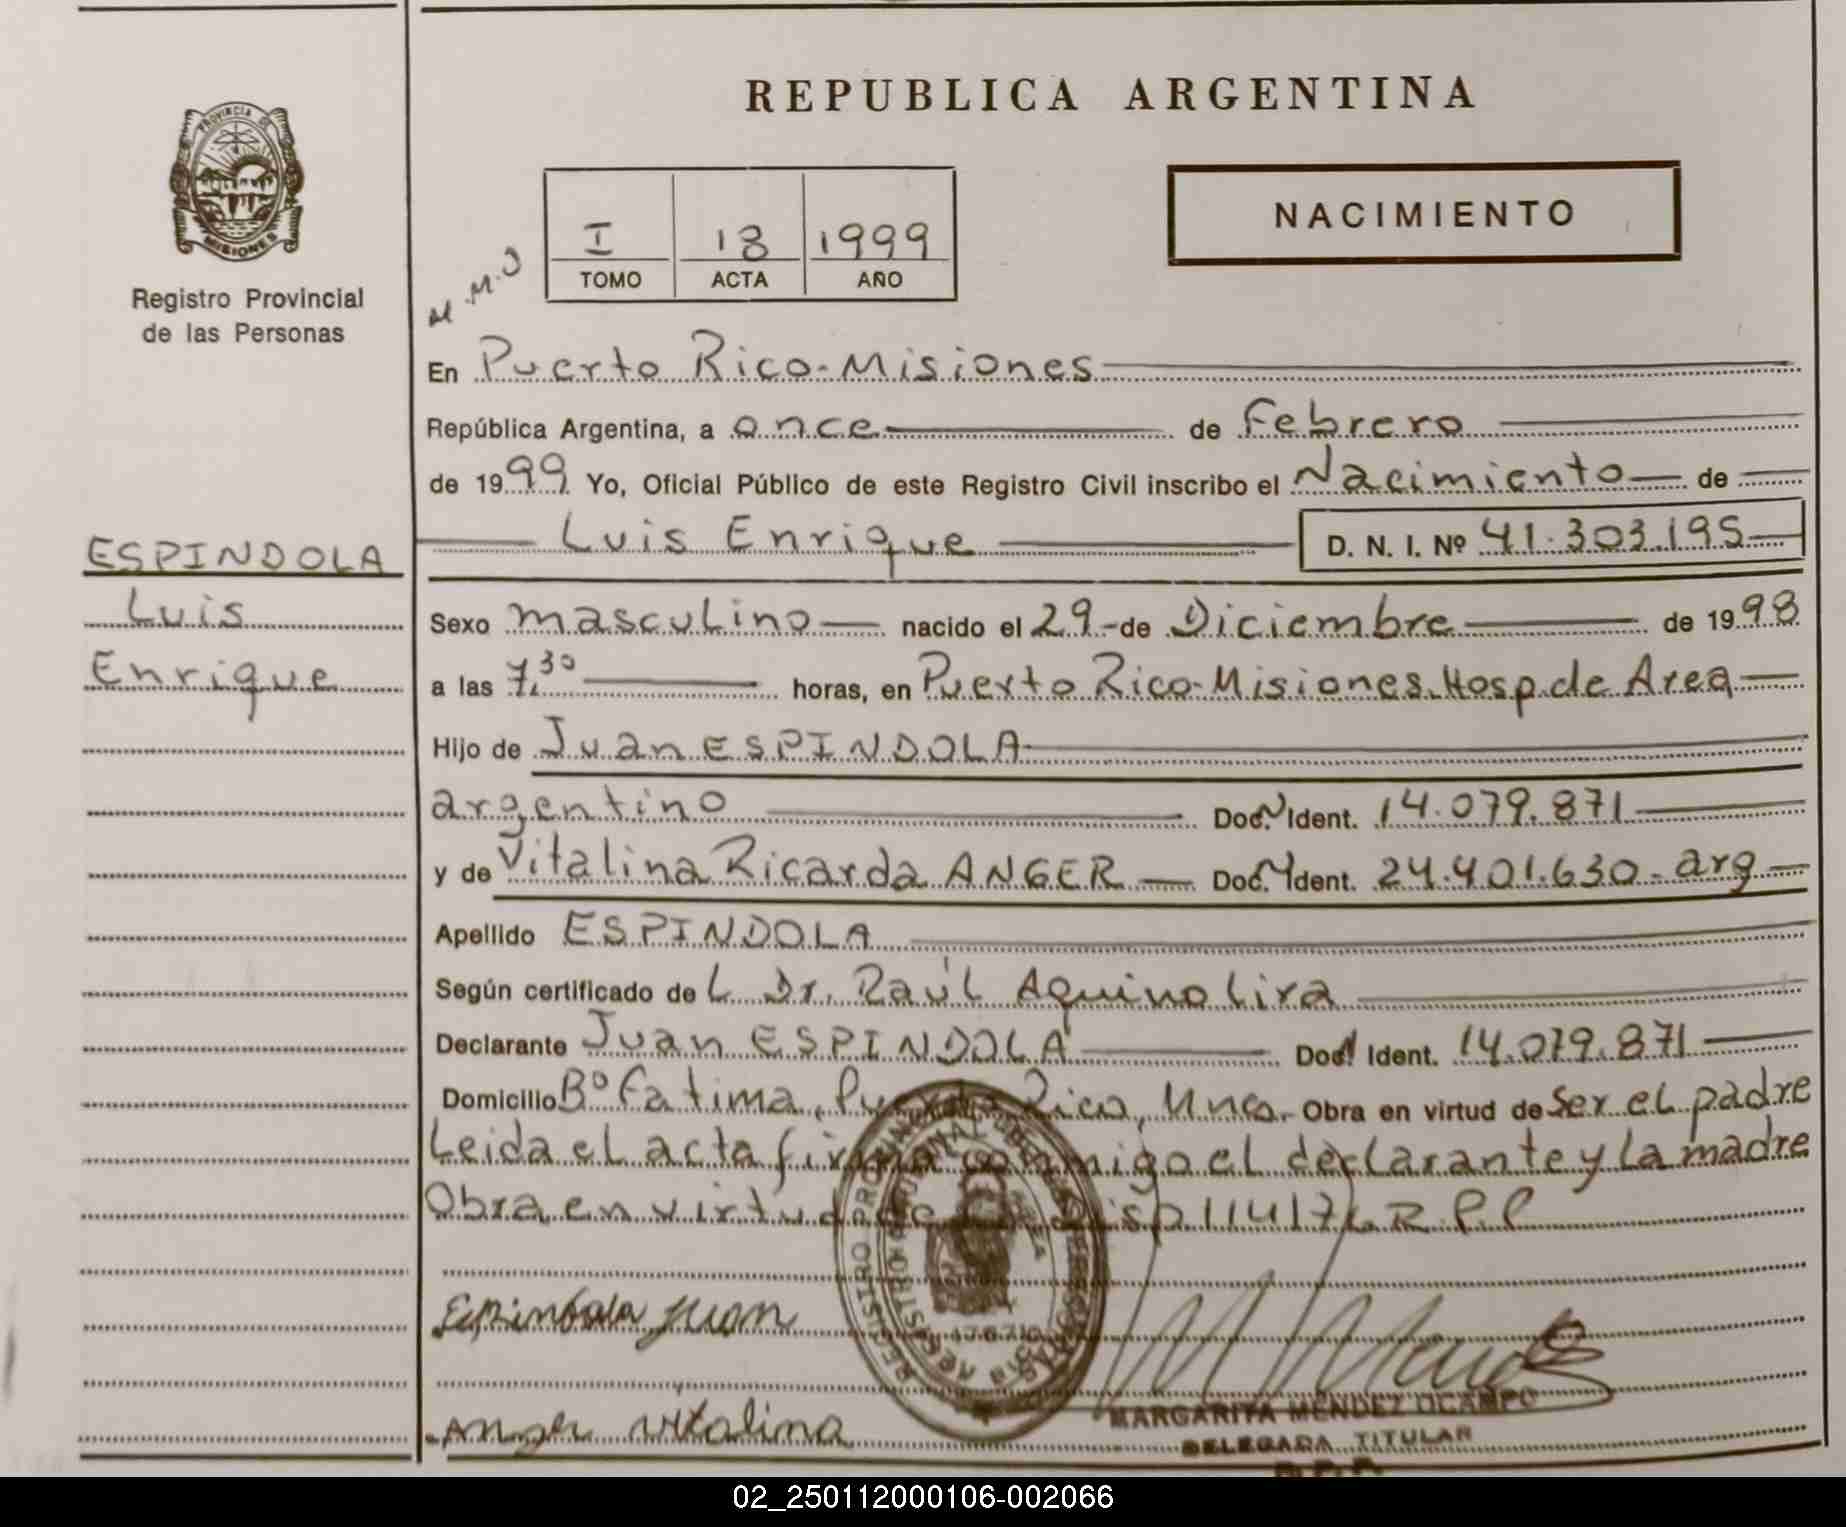 REPUBLICA ARGENTINA
PROVINCIA DE
MISIONES
Registro Provincial
de las Personas
I 18 1999
TOMO ACTA AÑO
NACIMIENTO
M.M.O
En Puerto Rico-Misiones
República Argentina, a once de Febrero
de 1999 Yo, Oficial Público de este Registro Civil inscribo el Nacimiento de
Luis Enrique D. N. I. Nº 41.303.195
ESPINDOLA
Luis
Enrique
Sexo masculino nacido el 29 de Diciembre de 1998
a las 7,30 horas, en Puerto Rico-Misiones.Hosp.de Area
Hijo de Juan ESPINDOLA
argentino Doc.N Ident. 14.079.871
y de Vitalina Ricarda ANGER Doc.N Ident. 24.401.630-arg
Apellido ESPINDOLA
Según certificado de L Dr. Raúl Aquino Lira
Declarante Juan ESPINDOLA Doc. Ident. 14.079.871
Domicilio Bº Fatima, Puerto Rico, Mnes. Obra en virtud de Ser el padre
Leida el acta firma conmigo el declarante y la madre
Obra en virtud de Disp 114/76 R.P.P
Espindola Juan
Anger Vitalina
MARGARITA MENDEZ OCAMPO
DELEGADA TITULAR
R.P.P.
02_250112000106-002066